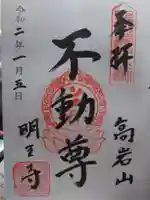 奉拝
高岩山
不動尊
明王寺
令和二年一月五日